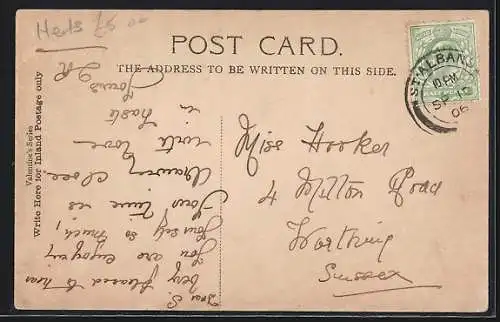 Herts £5 00
POST CARD.
THE ADDRESS TO BE WRITTEN ON THIS SIDE.
Valentine's Series
Write Here for Inland Postage only
ST ALBANS
10 PM
SP 12
06
Dear S.
Very pleased to hear
you are enjoying
yourself so much,
Your time is
drawing close.
with love
in haste
Yours
Miss Hooker
4 Milton Road
Worthing
Sussex